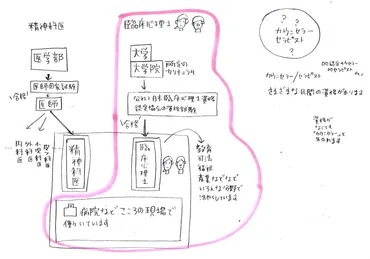 精神科医
医学部
医師国家試験
合格
医師
内科医
外科医
小児科医
精神科医
臨床心理士
大学
大学院
所定の
カリキュラム
公社)日本臨床心理士資格
認定協会の資格試験
合格
臨床心理士
教育
司法
福祉
産業などなど
いろんな分野で
活やくしています
病院など こころの現場で
働いています
? ? ?
カウンセラー
セラピスト
カウンセラー/セラピスト
さまざまな民間の資格があります
資格が
なくても
"カウンセラー"と
名のれます